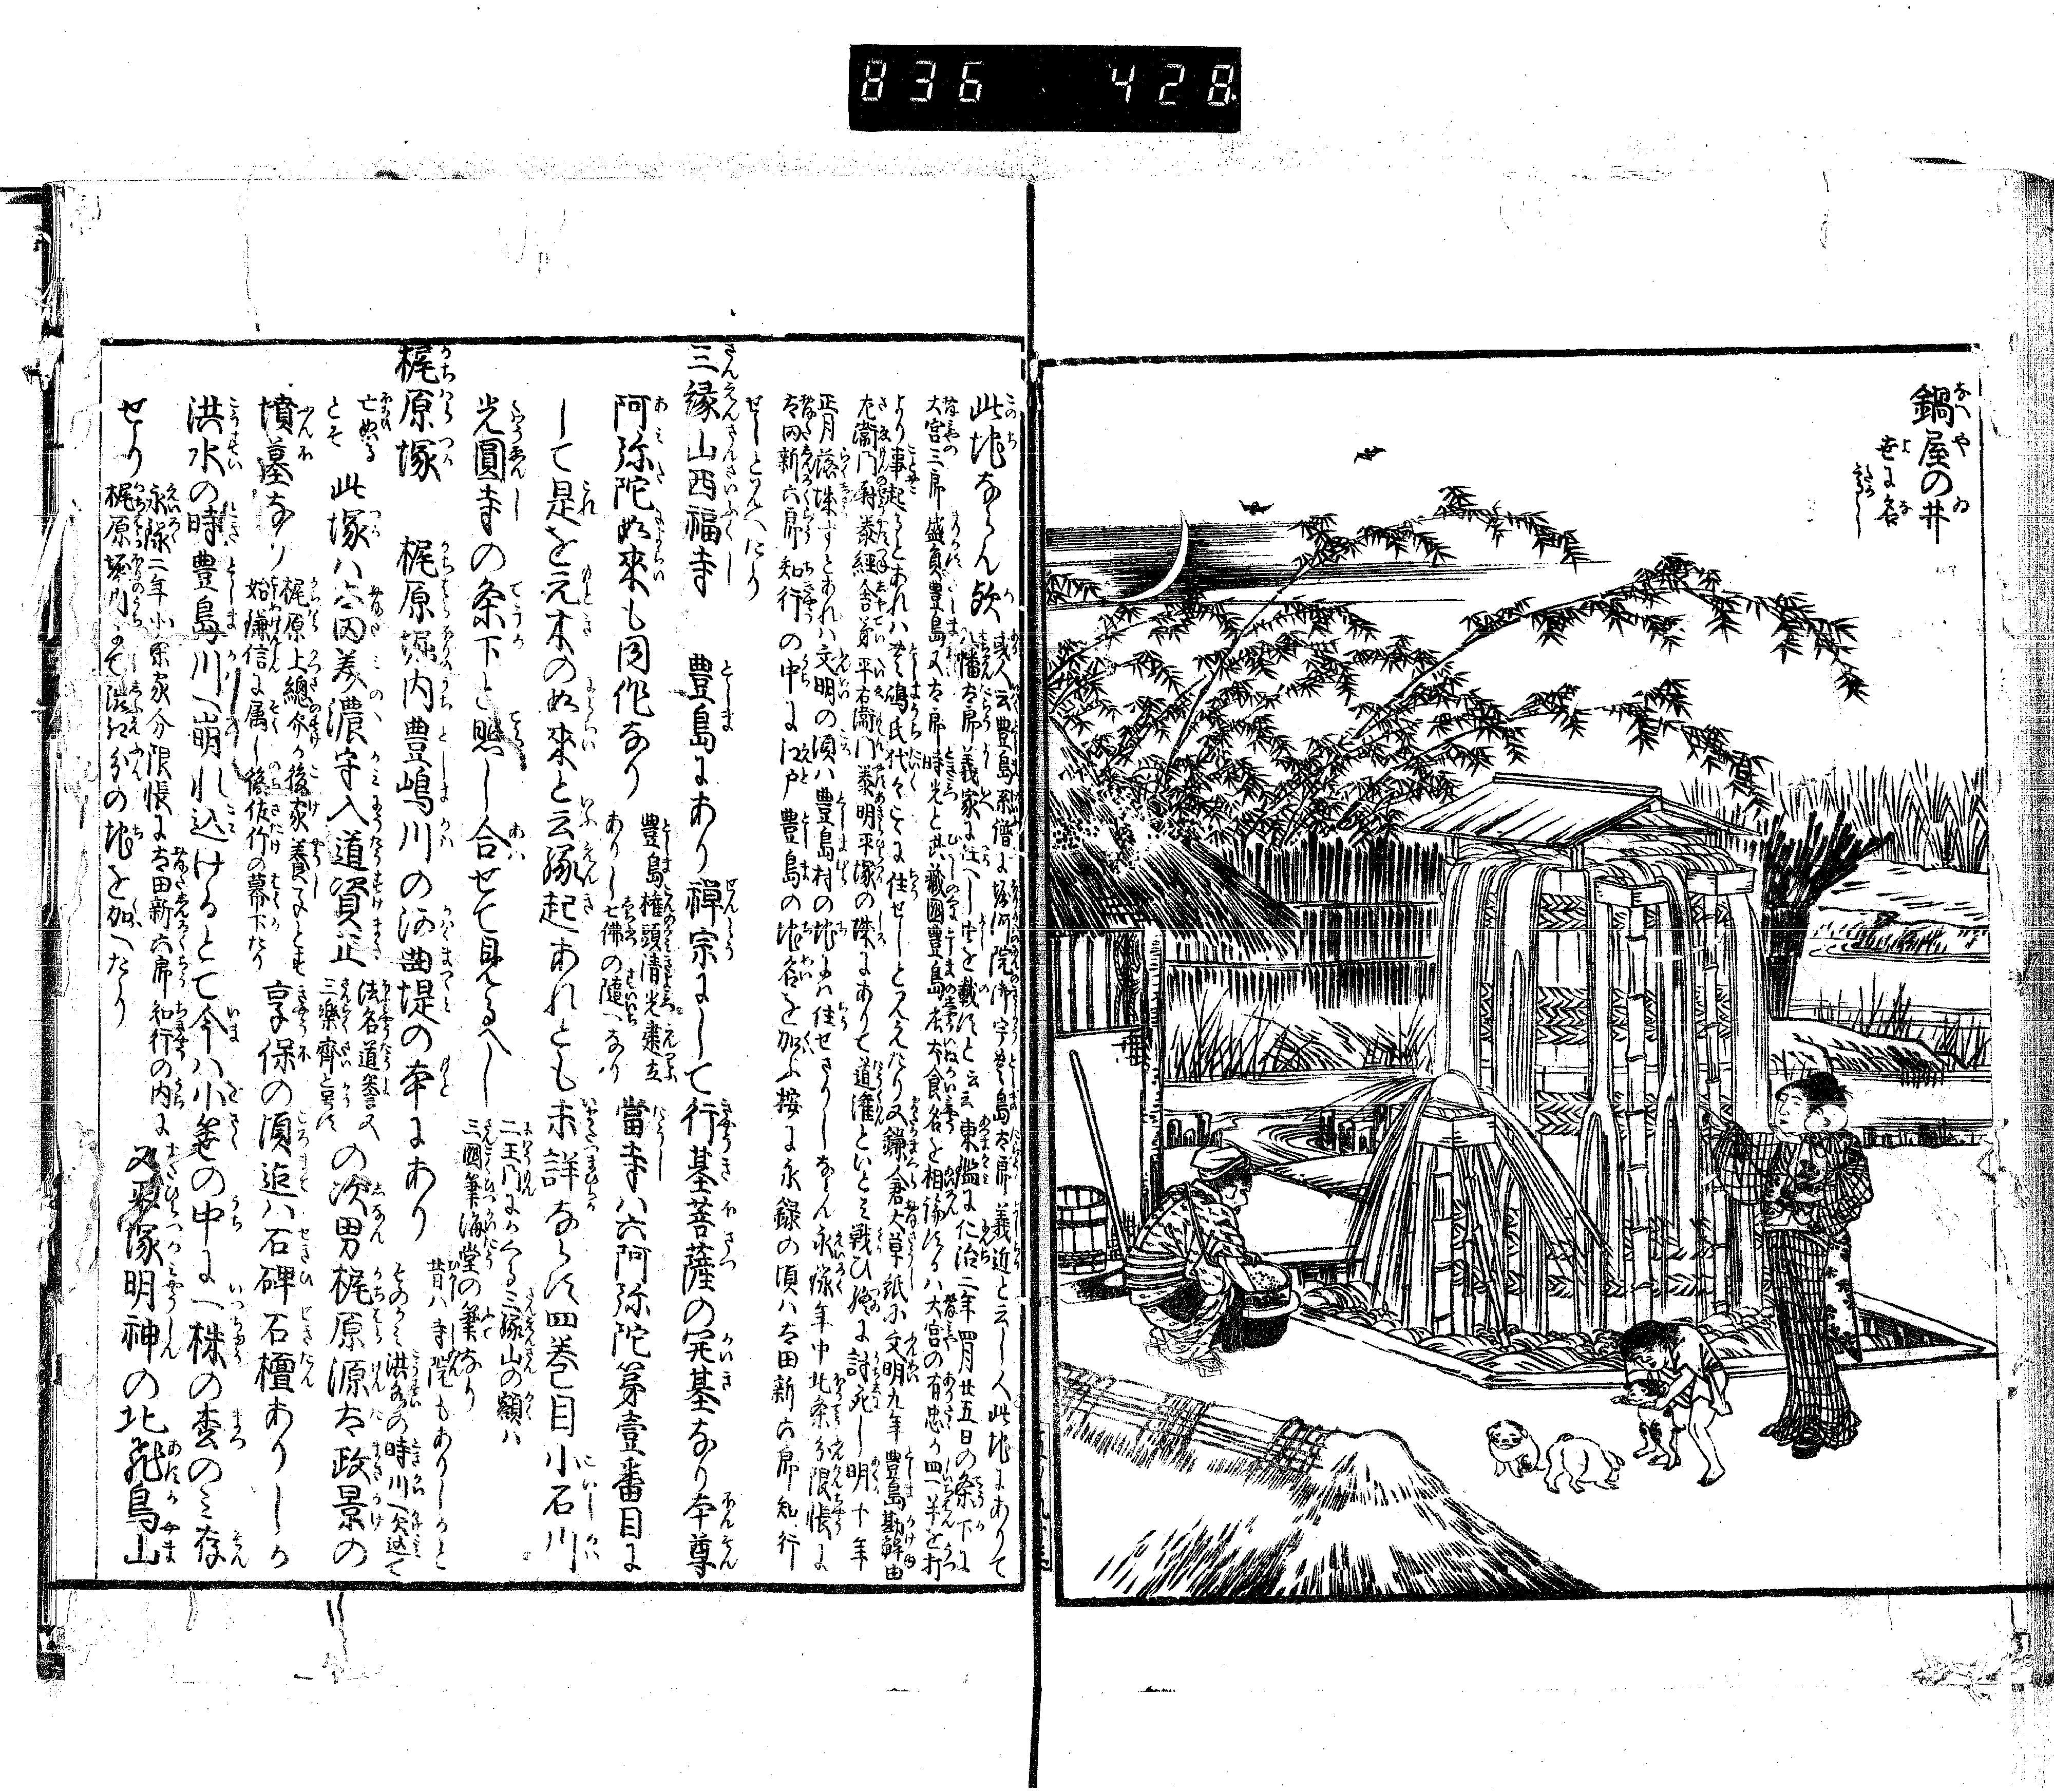 836 428
鍋屋の井
世に名
高し
此地ならん歟
或人云豊島系譜に堀河院御宇豊島太郎義近と云し人此地にありて
八幡太郎義家に仕へし由を載すと云云東鑑に仁治二年四月廿五日の条下に
大宮三郎盛員豊島又太郎時光と武蔵國豊島庄犬食名を相論する
より事起るとあれハ豊嶋氏代々こゝに住せしとみえたり又鎌倉大草紙に文明九年豊島勘解由
左衛門尉泰經舎弟平右衛門泰明平塚の城にありて道灌といどみ戦ひ終に討死し明十年
正月落城すとあれハ文明の頃ハ豊島村の地にハ住せさりしならん永禄年中北条家分限帳に
太田新六郎知行の中に江戸豊島の地名を加ふ按に永録の頃ハ太田新六郎知行
せしとみへたり
三縁山西福寺 豊島にあり禅宗にして行基菩薩の開基なり本尊
阿弥陀如来も同作なり
豊島権頭清光建立
ありし七佛の随一なり
當寺ハ六阿弥陀第壹番目に
して是を元木の如来と云縁起あれとも未詳ならす四巻目小石川
光圓寺の条下と照し合せて見るへし
二王門にかくる三縁山の額ハ
三國筆海堂の筆なり
梶原塚 梶原堀内豊嶋川の河曲堤の本にあり
昔ハ寺院もありしかと
そのかみ洪水の時川へ欠込て
亡ぬる
とそ
此塚ハ太田美濃守入道資正
法名道誉又
三樂齊と号す
の次男梶原源太政景の
墳墓なり
梶原上總介か後家養子と
始謙信に属し後佐竹の幕下たり
享保の頃迄ハ石碑石檀ありしか
洪水の時豊島川へ崩れ込けるとて今ハ小笹の中に一株の松のミ存
せり
永禄二年小田原家分限帳に太田新六郎知行の内に
梶原堀内にて
の地を加へたり
又平塚明神の北飛鳥山